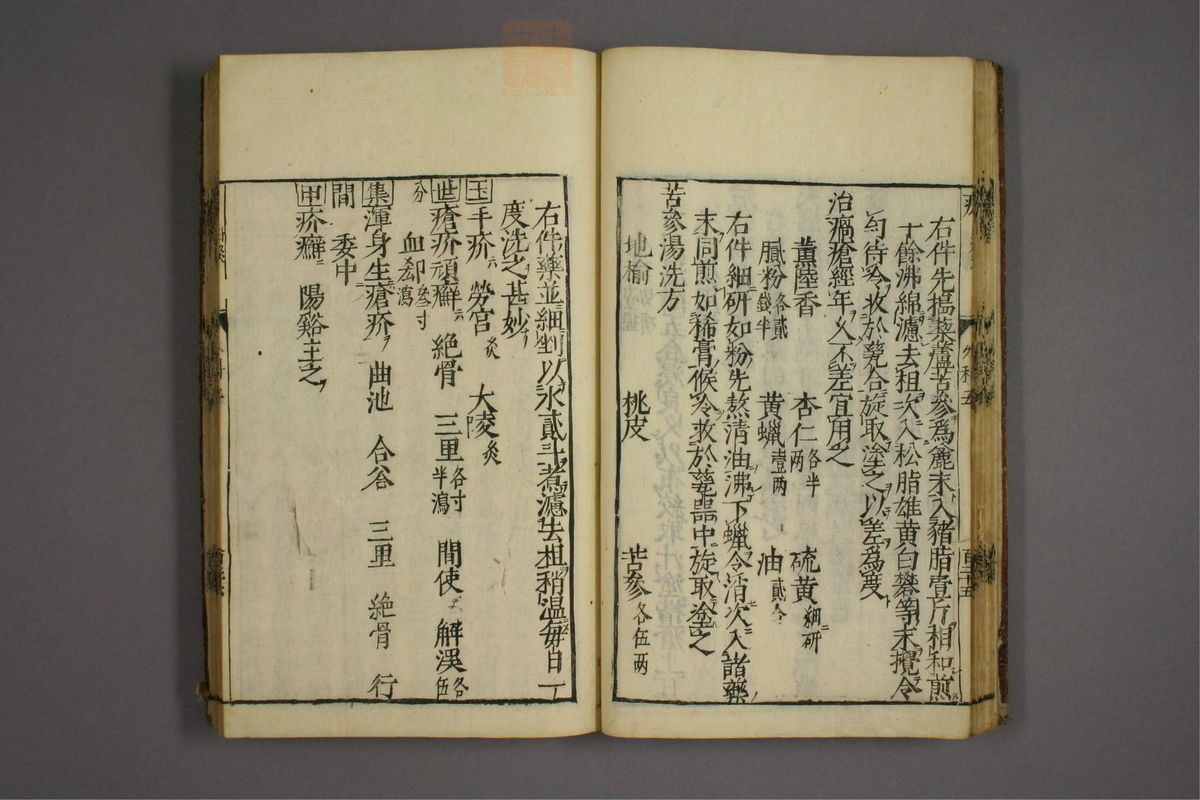 右件先搗藜蘆苦參為麄末入豬脂壹斤相和煎
十餘沸綿濾去柤次入松脂雄黄白礬等末攪令
勻待冷收於甆合旋取塗之以差為度
治瘑瘡經年久不差宜用之
薫陸香 杏仁各半兩 硫黄細研
膩粉各貳錢半 黄蠟壹两 油貳合
右件細研如粉先熬清油沸下蠟令消次入諸藥
末同煎如稀膏候冷收於甆噐中旋取塗之
苦參湯洗方
地榆 桃皮 苦參各伍两
右件藥並細剉以水貳斗煮濾去柤稍温每日一
度洗之甚妙
玉手疥 勞宫灸 大陵灸
世瘡疥頑癬 絶骨 三里各寸半瀉 間使 解溪各伍
分 血郄叁寸瀉
集渾身生瘡疥 曲池 合谷 三里 絶骨 行
間 委中
甲疥癬 陽谿主之
外科五
百二十五